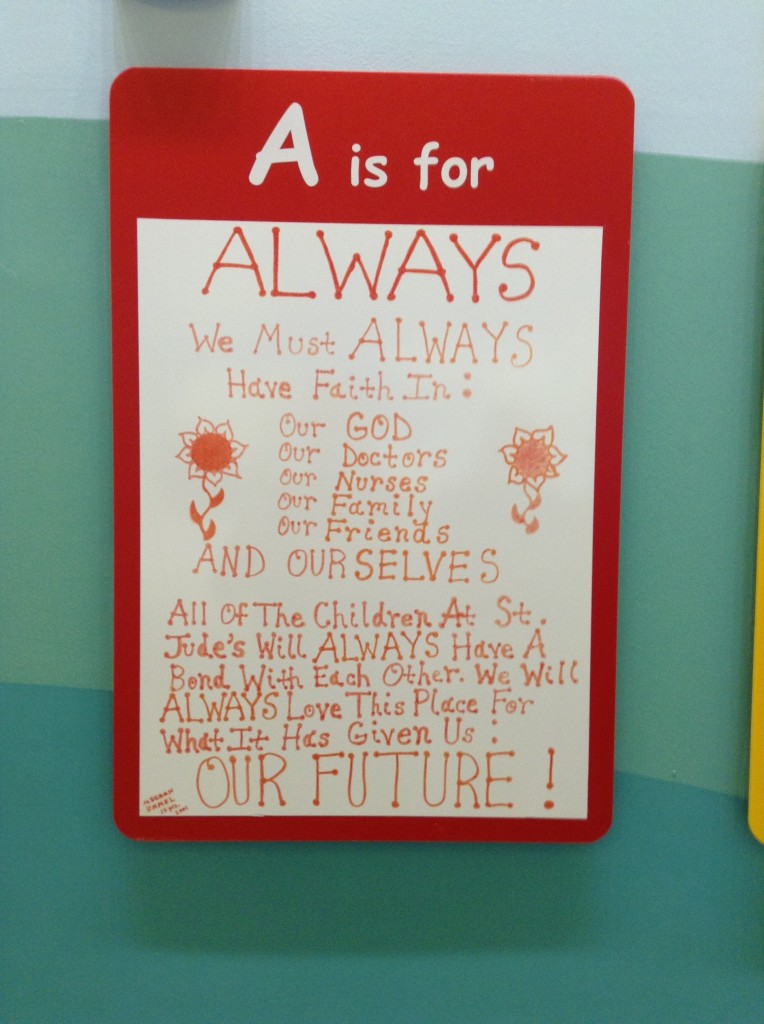 A is for
ALWAYS
We Must ALWAYS
Have Faith In:
Our GOD
Our Doctors
Our Nurses
Our Family
Our Friends
AND OURSELVES
All Of The Children At St.
Jude's Will ALWAYS Have A
Bond With Each Other. We Will
ALWAYS Love This Place For
What It Has Given Us:
OUR FUTURE!